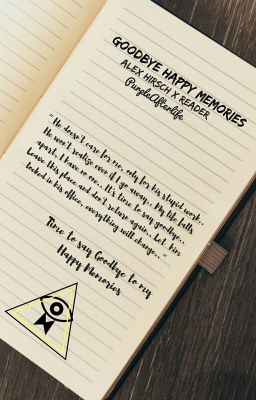 GOODBYE HAPPY MEMORIES
ALEX HIRSCH X READER
PurpleAfterlife
"He doesn't care for me, only for his stupid work..
He won't realise even if I go away.. My life falls
apart, I have no one.. It's time to say goodbye..
Leave this place and don't return again.. Let him
locked in his office, everything will change.."
Time to say Goodbye to my
Happy Memories